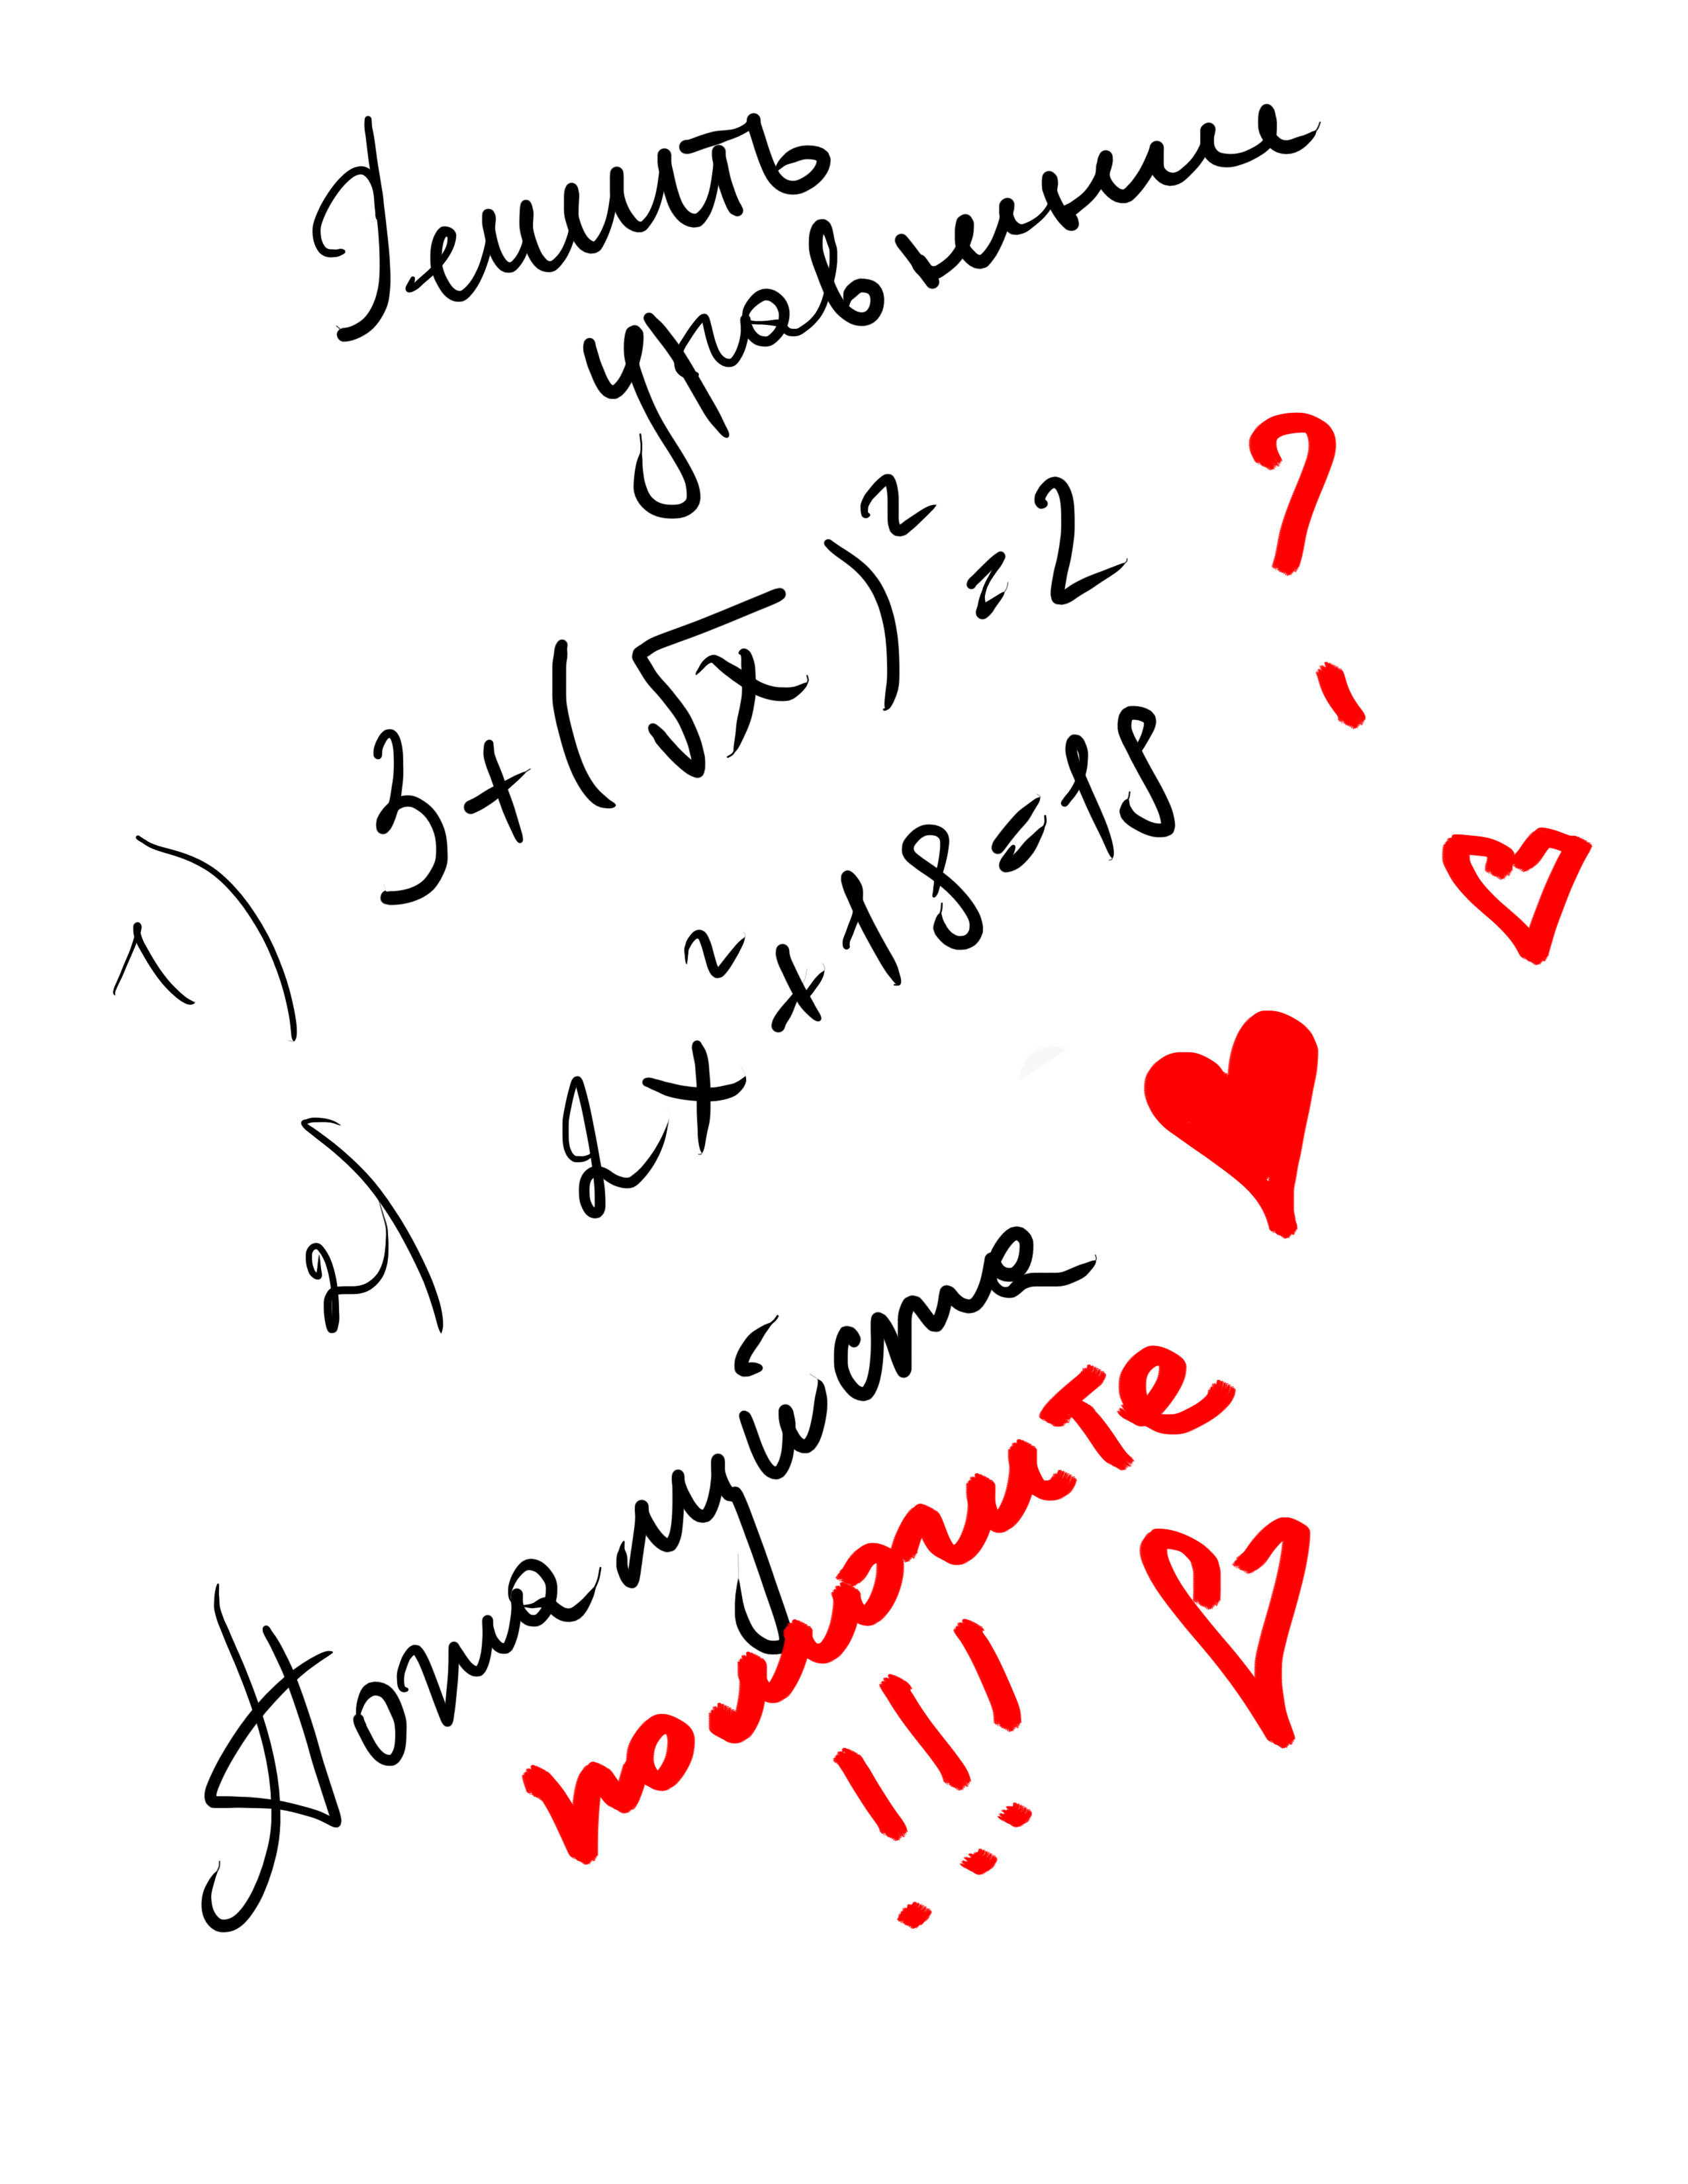 Решить
уравнение ?
1) 3 + (√x)² = 2
2) 2x² + 18 = 18
Пожалуйста
помогите
!!!